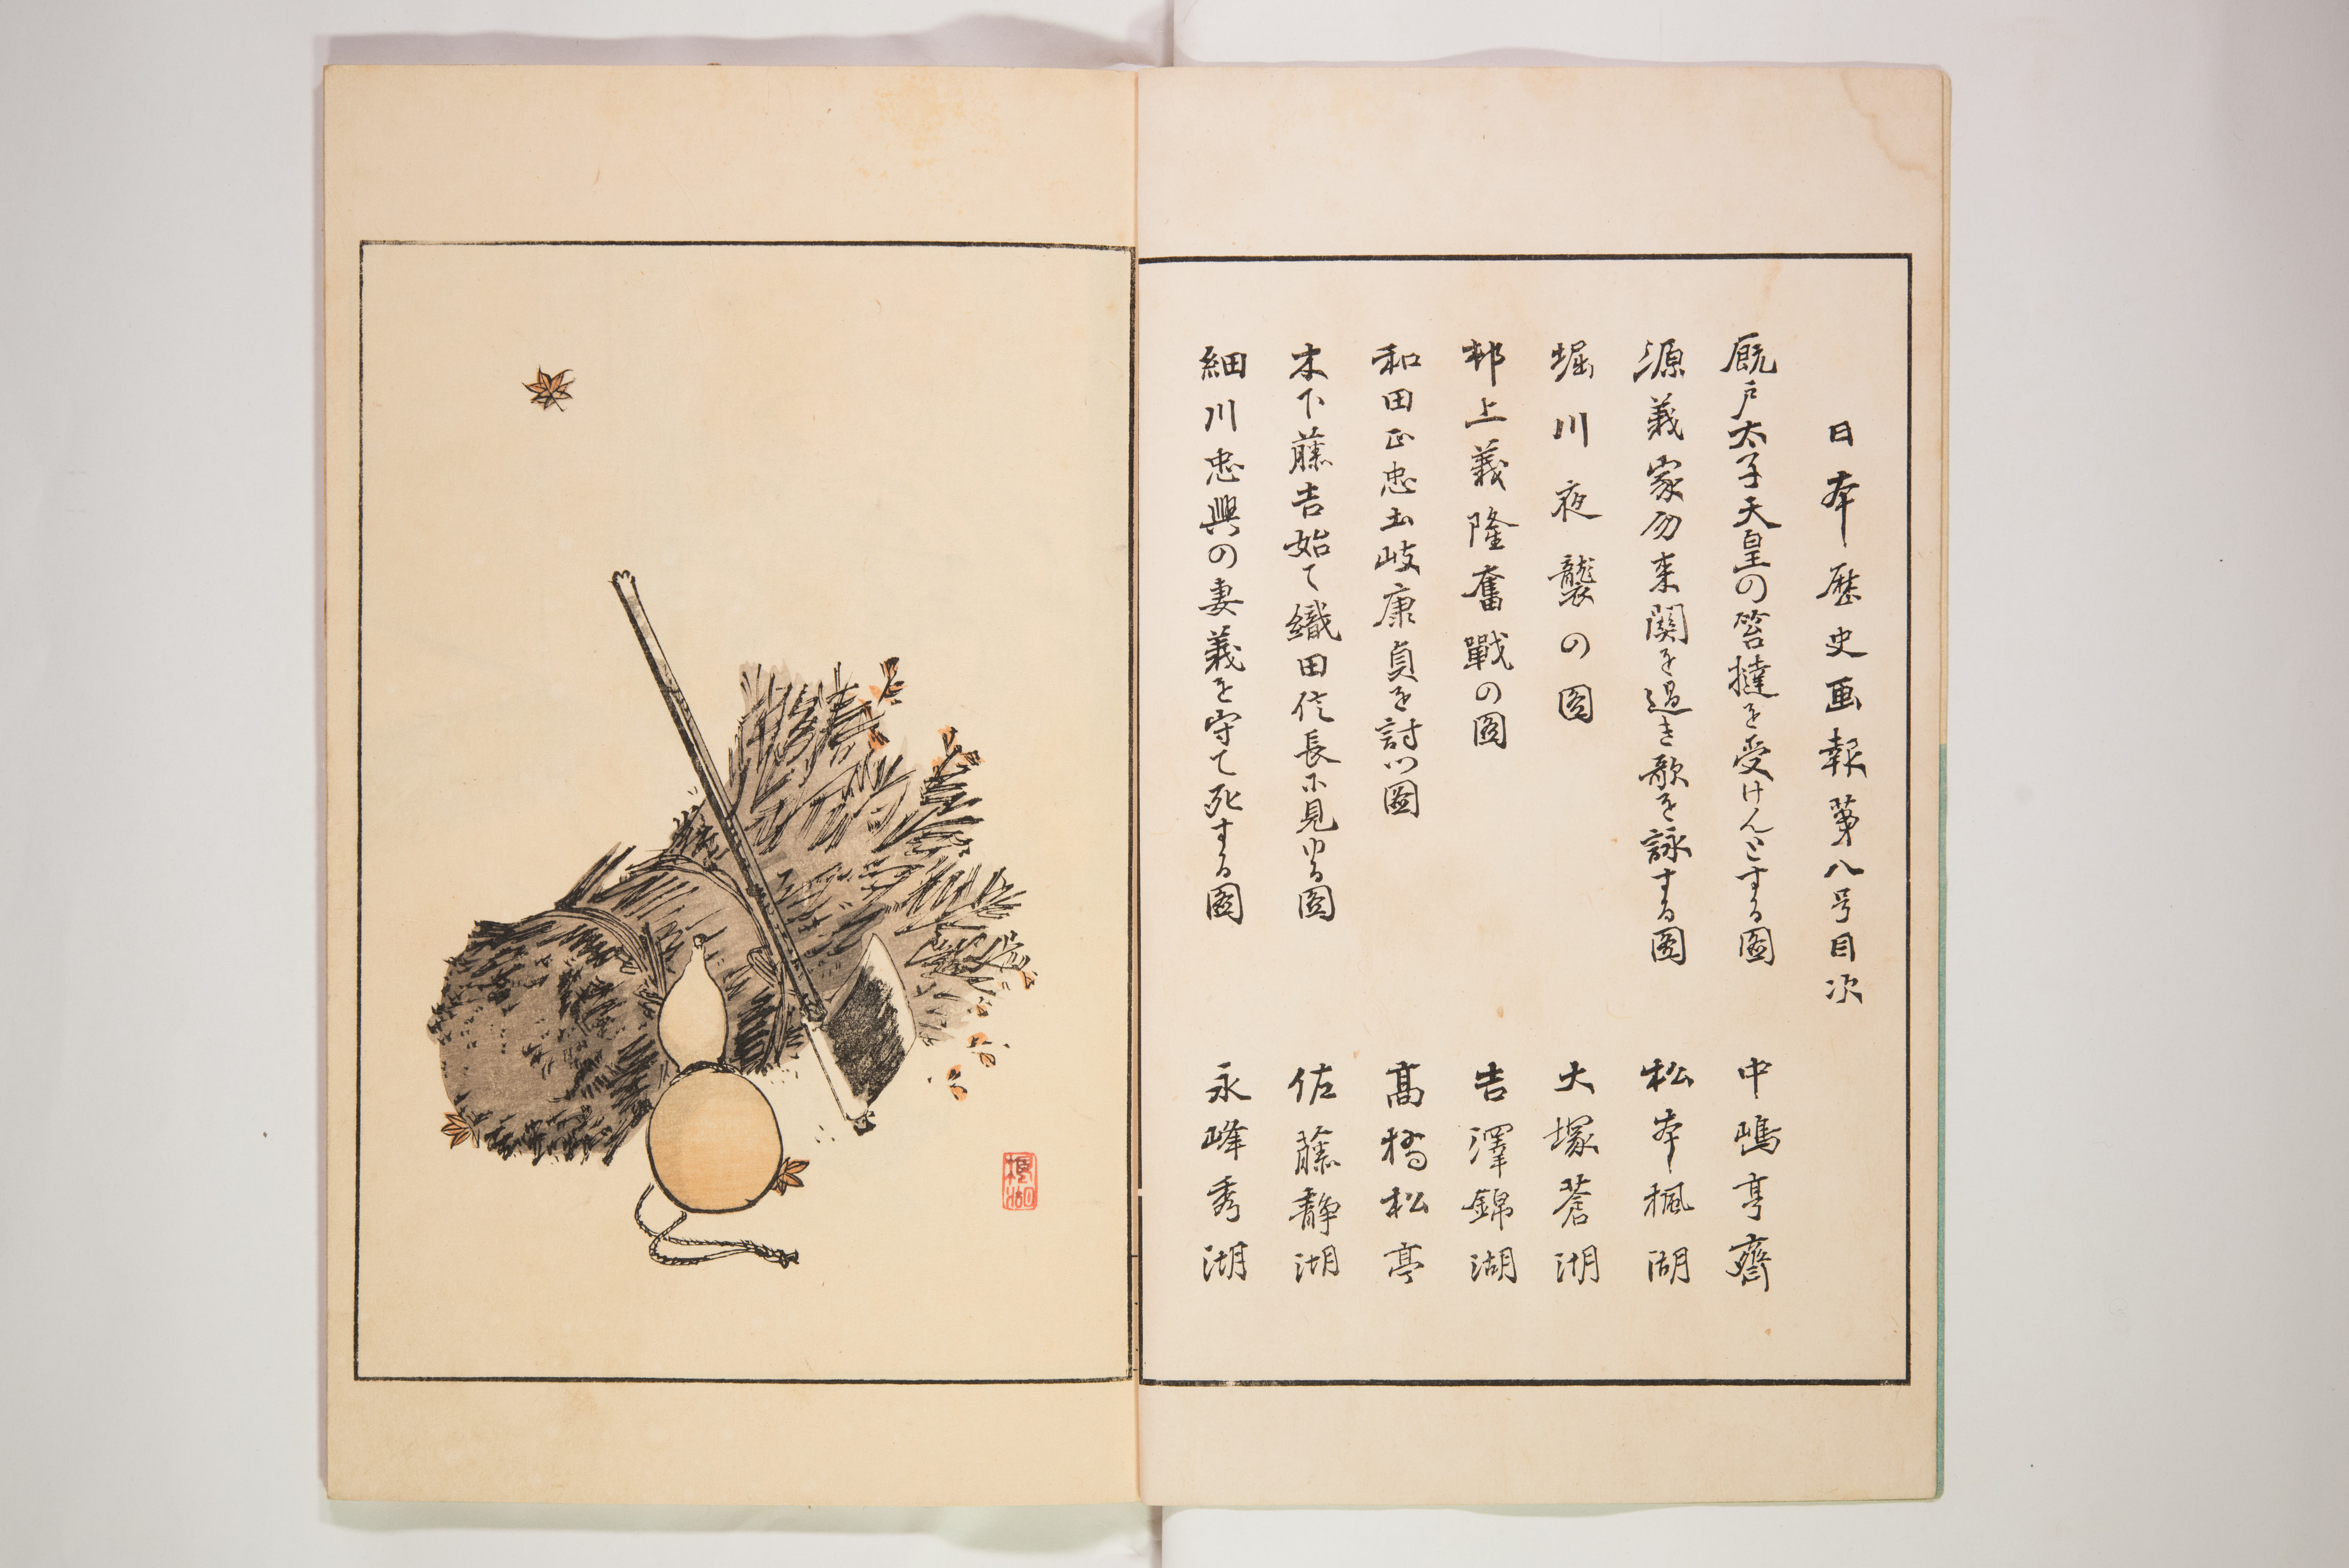 日本歴史画報第八号目次
厩戸太子天皇の笞撻を受けんとする圖 中嶋亨齋
源義家勿来関を過き歌を詠する圖 松本楓湖
堀川夜襲の圖 大塚蒼湖
邨上義隆奮戰の圖 吉澤錦湖
和田正忠土岐康貞を討つ圖 髙橋松亭
木下藤吉始て織田信長に見ゆる圖 佐藤静湖
細川忠興の妻義を守て死する圖 永峰秀湖
楓湖